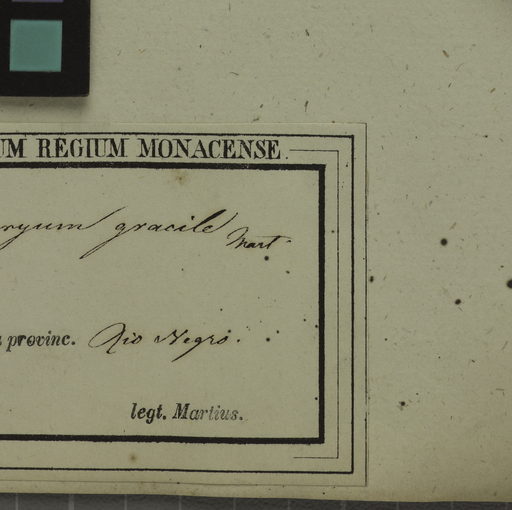 UM REGIUM MONACENSE
ryum gracile Mart
provinc. Rio Negro.
legt. Martius.